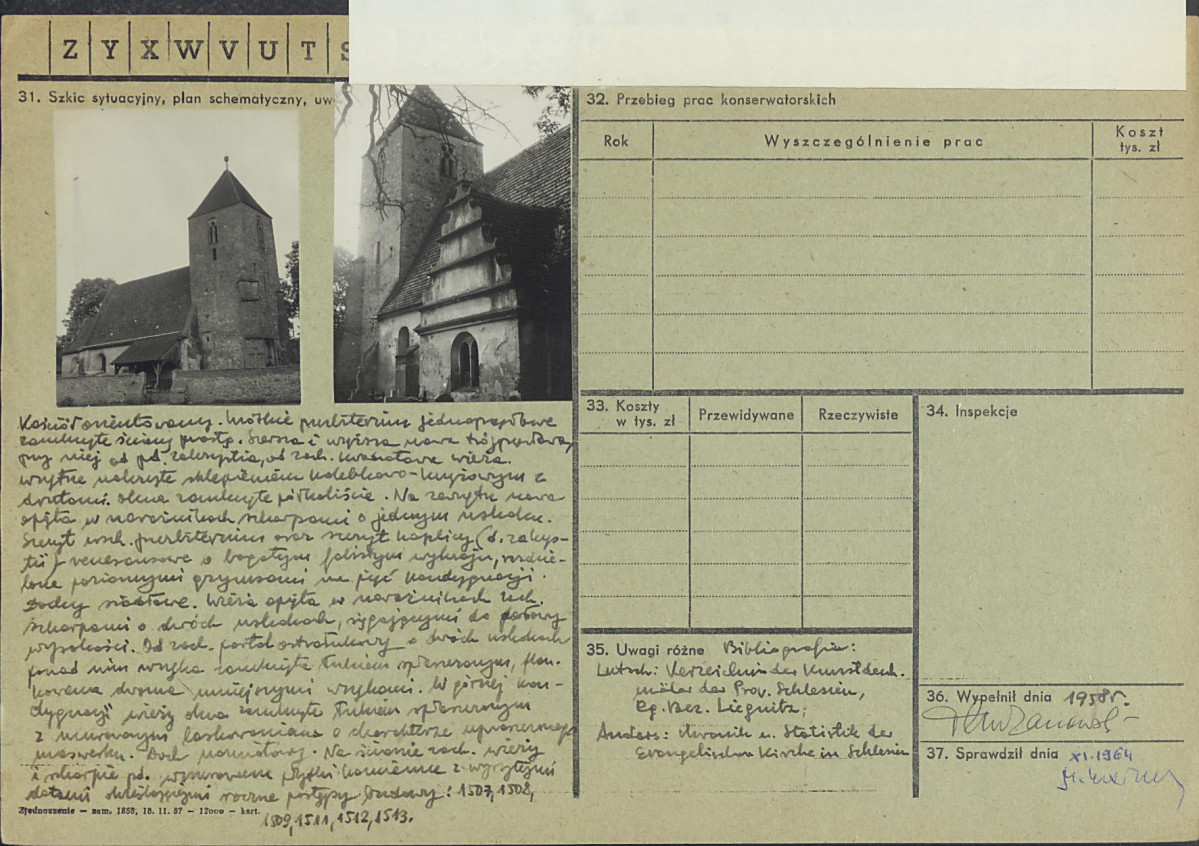 Z Y X W V U T S
31. Szkic sytuacyjny, plan schematyczny, uw
Kościół orientowany. Niskie prezbiterium jednoprzęsłowe
zamknięte ścianą prostą. Szersza i wyższa nawa trójprzęsłowa,
przy niej od pd. zakrystia, od zach. kwadratowa wieża.
Wnętrze nakryte sklepieniem kolebkowo-krzyżowym z
Okna zamknięte półkoliście. Na zewnątrz nawa
opięta w narożnikach szkarpami o jednym uskoku.
Szczyt wsch. prezbiterium oraz szczyt kaplicy (d. zakry-
stii) renesansowe o bogatym falistym wykroju, rozdzie-
lone poziomymi gzymsami na pięć kondygnacji.
Dachy siodłowe. Wieża opięta w narożnikach zach.
szkarpami o dwóch uskokach, sięgającymi do połowy
wysokości. Od zach. portal ostrołukowy o dwóch uskokach
ponad nim wnęka zamknięta łukiem spłaszczonym, flan-
kowana dwoma mniejszymi wnękami. W górnej kon-
dygnacji wieży okna zamknięte łukiem spłaszczonym
z murowanymi laskowaniami o charakterze uproszczonego
maswerku. Dach namiotowy. Na ścianie zach. wieży
i szkarpie pd. wmurowane płytki kamienne z wyrytymi
datami określającymi roczne postępy budowy: 1507, 1508,
1509, 1511, 1512, 1513.
Zjednoczenie — zam. 1858, 18. 11. 57 — 12000 — kart.
32. Przebieg prac konserwatorskich
Rok
Wyszczególnienie prac
Koszt
tys. zł
33. Koszty
w tys. zł
Przewidywane
Rzeczywiste
34. Inspekcje
35. Uwagi różne Bibliografia:
Lutsch: Verzeichnis der Kunstdenk-
mäler der Prov. Schlesien,
Rg. Bez. Liegnitz;
Anders: Chronik u. Statistik der
Evangelischen Kirche in Schlesien
36. Wypełnił dnia 1958 r.
37. Sprawdził dnia XI.1964